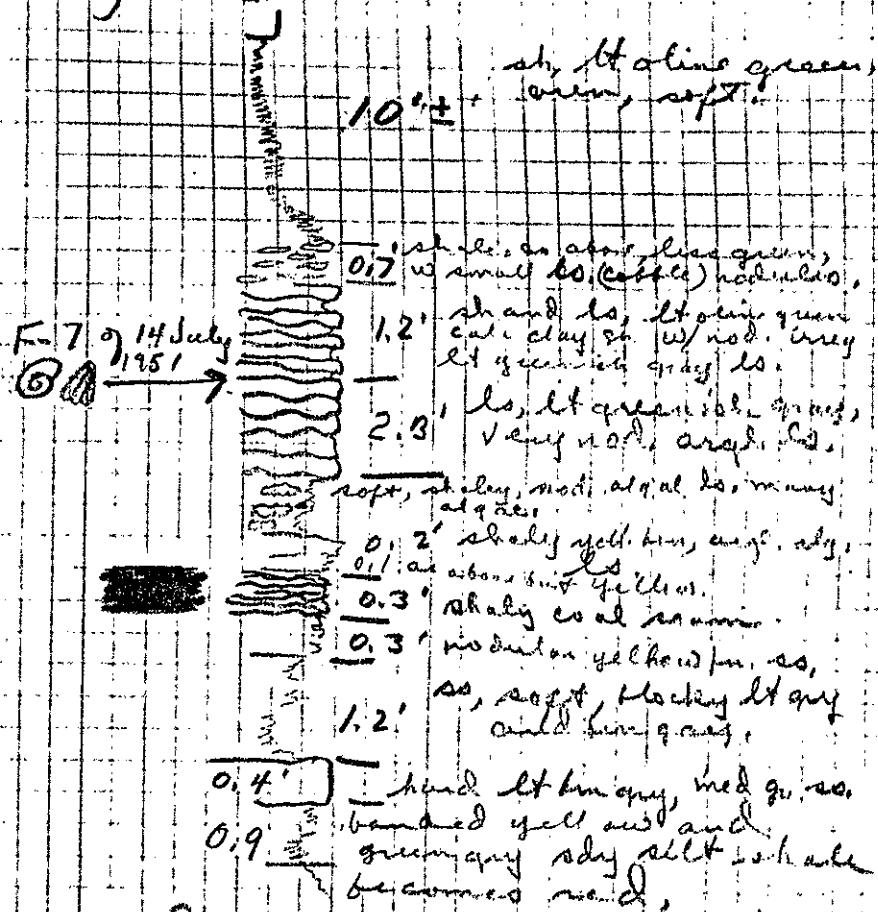 sh, lt olive green,
even, soft.
10'±
0.7' shale, as above, less green,
w small ls. (cobble) nodules.
1.2' sh and ls, lt olive green
calc clay sh w/ nod. irreg
lt greenish gray ls.
F-7 of 14 July
1951
2.3' ls, lt greenish gray,
very nod. argil. ls.
soft, shaley, nod. algal ls. many
algae.
0.2' shaly yell. brn, argil. alg.
ls
0.1' as above but yellow.
0.3' shaly coal seam.
0.3' nodular yellow brn. ss,
1.2' ss, soft, blocky lt gry
and brn gray,
0.4' hard lt brn gry, med gr. ss.
0.9 banded yellow and
green gry sdy silt shale
becomes red,